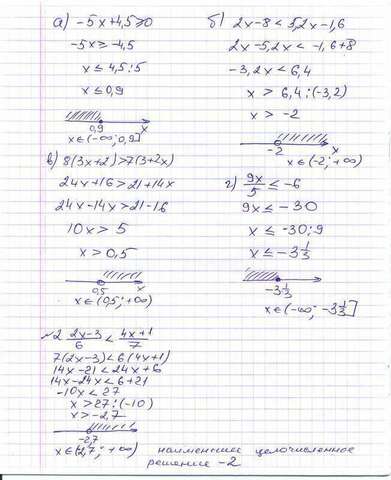 а) -5x+4,5≥0
-5x≥-4,5
x≤4,5:5
x≤0,9
0,9 x
x∈(-∞;0,9]
б) 2x-8<5,2x-1,6
2x-5,2x<-1,6+8
-3,2x<6,4
x>6,4:(-3,2)
x>-2
-2 x
x∈(-2;+∞)
в) 8(3x+2)>7(3+2x)
24x+16>21+14x
24x-14x>21-16
10x>5
x>0,5
0,5 x
x∈(0,5;+∞)
г) 9x/5≤-6
9x≤-30
x≤-30:9
x≤-3 1/3
-3 1/3
x∈(-∞;-3 1/3]
№2 2x-3/6<4x+1/7
7(2x-3)<6(4x+1)
14x-21<24x+6
14x-24x<6+21
-10x<27
x>27:(-10)
x>-2,7
-2,7
x∈(-2,7;+∞) наименьшее целочисленное
решение -2